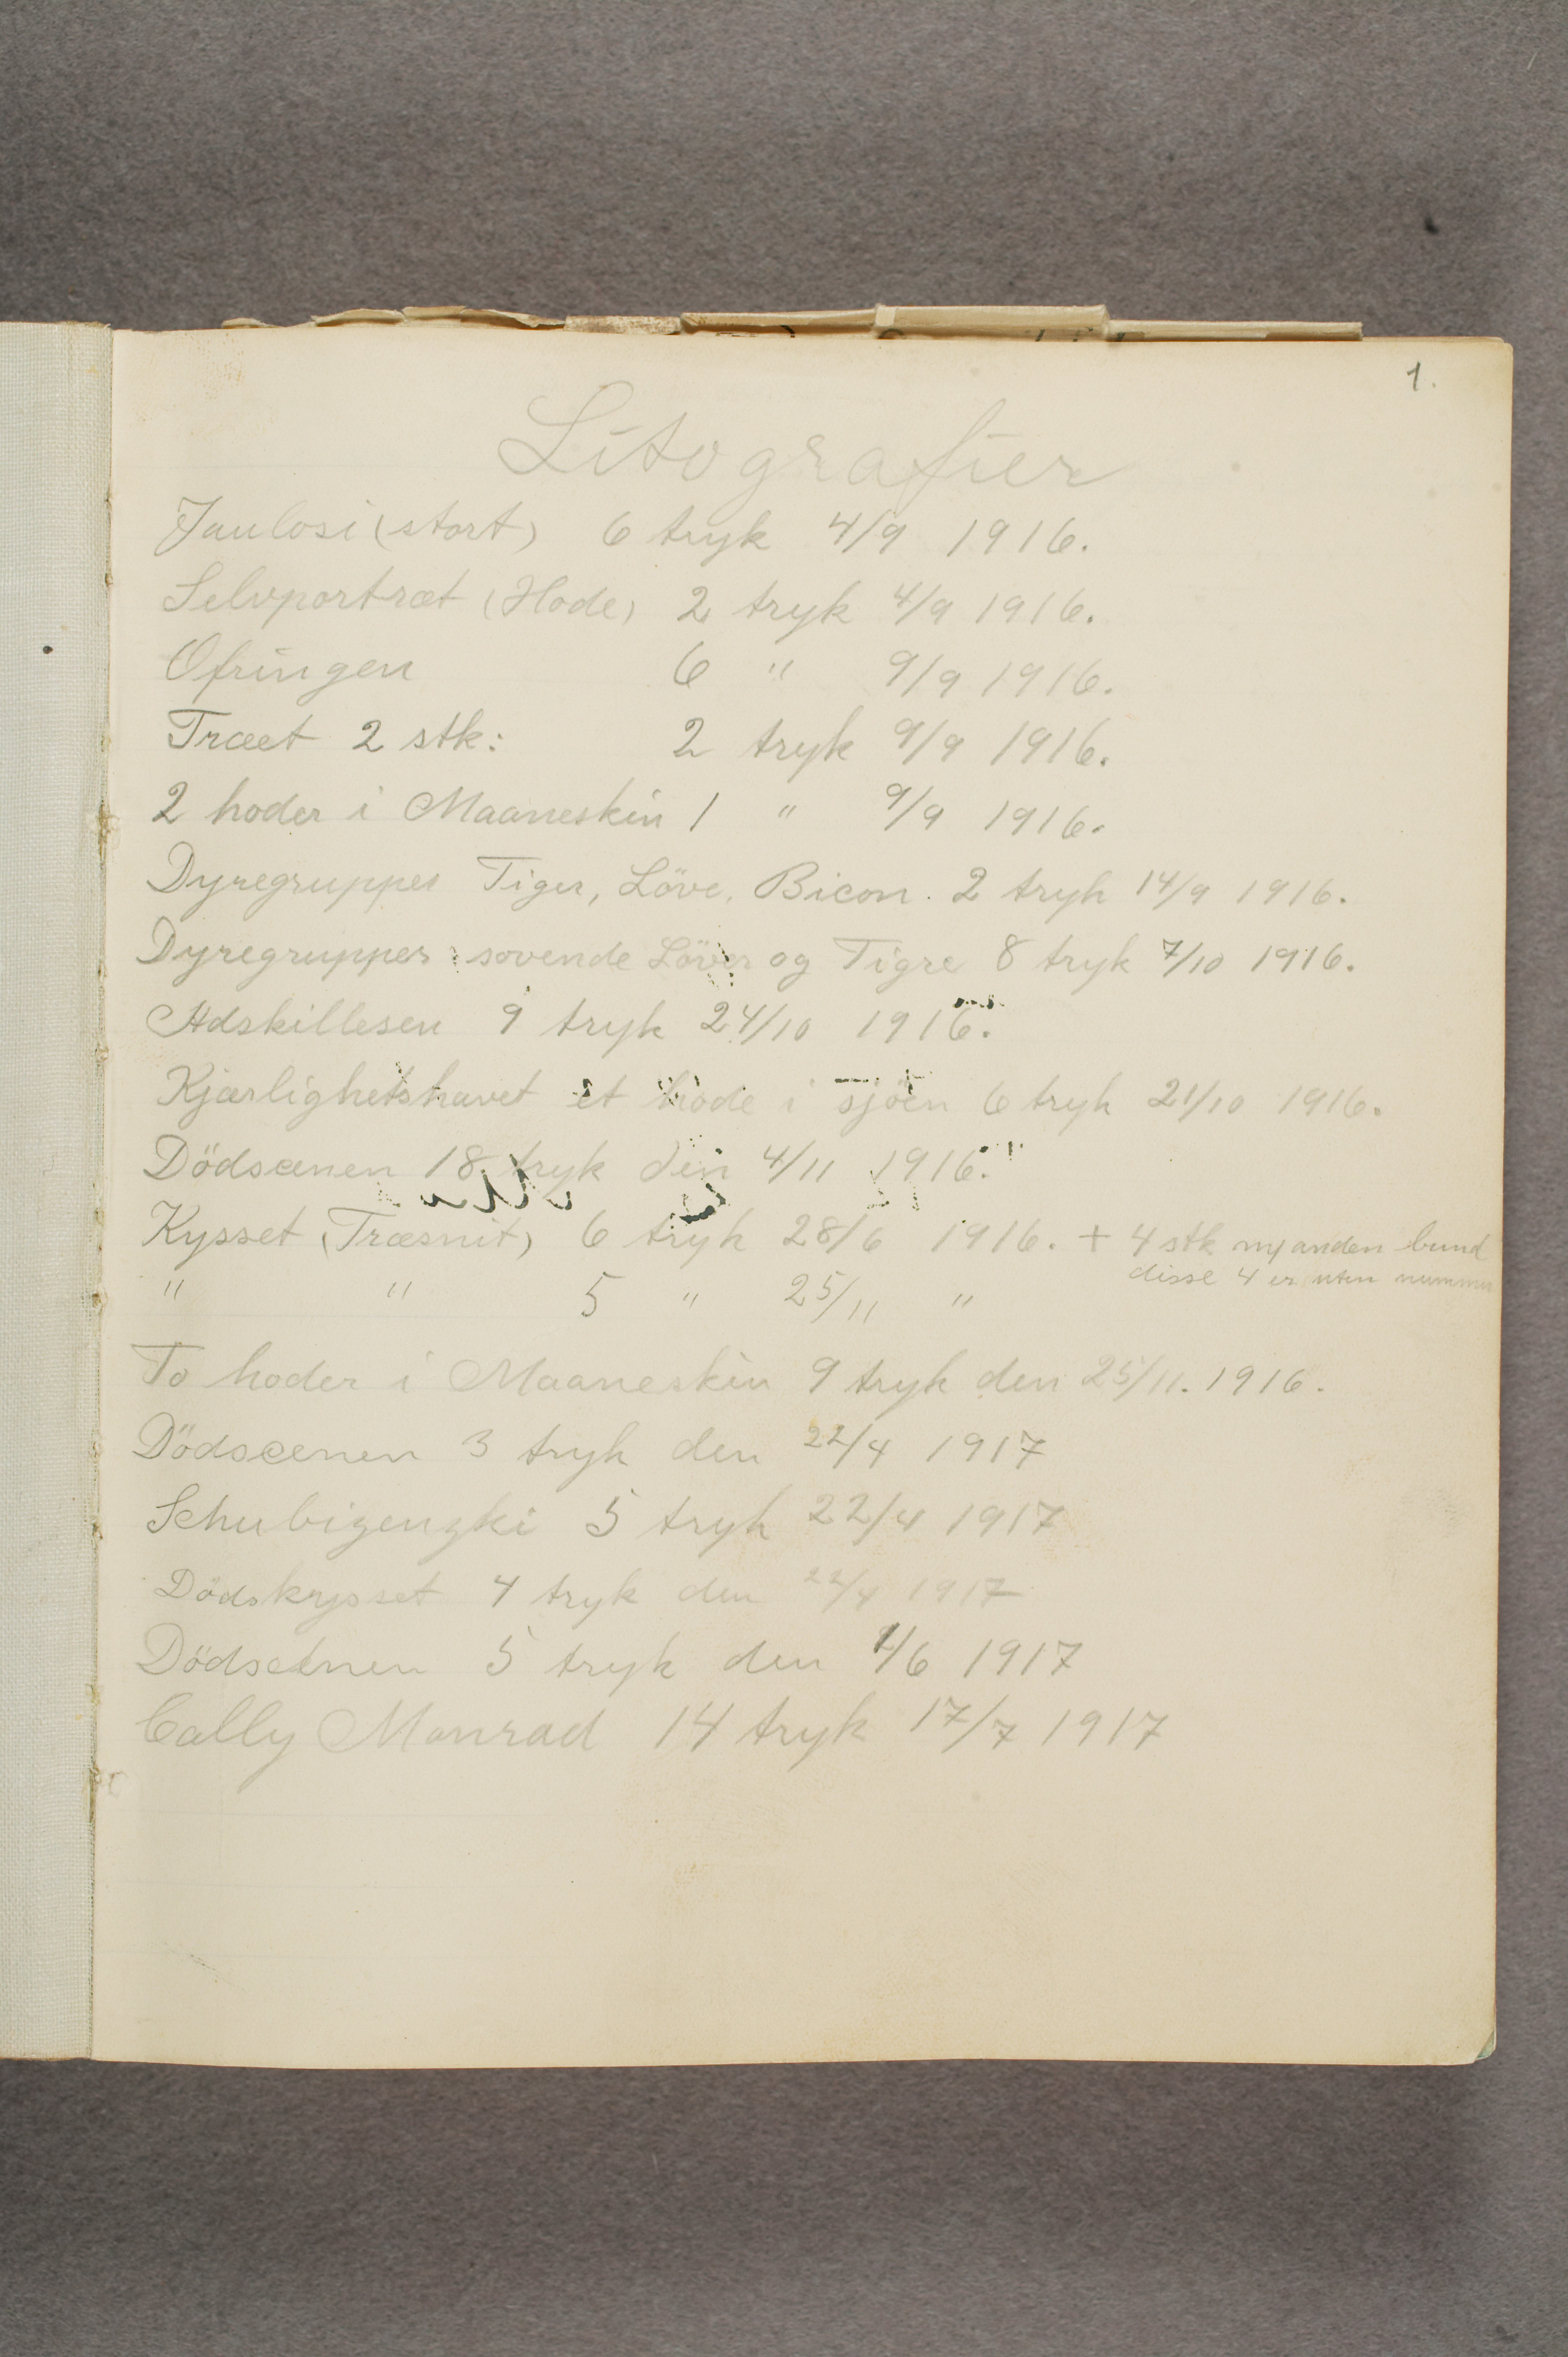 1.
Litografier
Jaulosi (stort) 6 tryk 4/9 1916.
Selvportræt (Hode) 2 tryk 4/9 1916.
Ofringen 6 " 9/9 1916.
Træet 2 stk: 2 tryk 9/9 1916.
2 hoder i Maaneskin 1 " 9/9 1916.
Dyregrupper Tiger, Löve, Bicon. 2 tryk 14/9 1916.
Dyregrupper: sovende Löver og Tigre 8 tryk 7/10 1916.
Adskillesen 9 tryk 24/10 1916.
Kjærlighetshavet et hode i sjöen 6 tryk 21/10 1916.
Dödscenen 18 tryk den 4/11 1916.
Kysset (Træsnit) 6 tryk 28/6 1916. + 4 stk m/anden bund
disse 4 er uten nummer
" " 5 " 25/11 "
To hoder i Maaneskin 9 tryk den 25/11. 1916.
Dödscenen 3 tryk den 22/4 1917
5 tryk 22/4 1917
Dödskysset 4 tryk den 22/4 1917
Dödscenen 5 tryk den 1/6 1917
Cally Monrad 14 tryk 17/7 1917